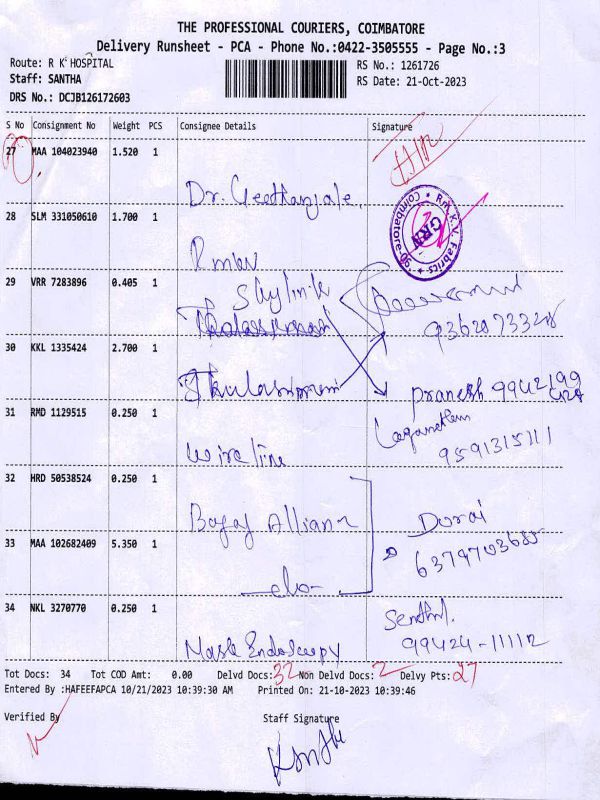 THE PROFESSIONAL COURIERS, COIMBATORE
Delivery Runsheet - PCA - Phone No.:0422-3505555 - Page No.:3
Route: R K HOSPITAL
RS No.: 1261726
Staff: SANTHA
RS Date: 21-Oct-2023
DRS No.: DCJB126172603
S No Consignment No Weight PCS Consignee Details Signature
27 MAA 104023940 1.520 1
Dr. Geethanjale
28 SLM 331050610 1.700 1
Rmkv
R.m.K.V. Fabrics
GRN
Coimbatore
29 VRR 7283896 0.405 1
Skylink
9362873328
30 KKL 1335424 2.700 1
Pranesh 9942199
428
31 RMD 1129515 0.250 1
Wireline
9591315111
32 HRD 50538524 0.250 1
Bajaj Allianz
Dorai
33 MAA 102682409 5.350 1
-do-
34 NKL 3270770 0.250 1
Senthil.
99424-11112
Mask Endoscopy
Tot Docs: 34 Tot COD Amt: 0.00 Delvd Docs: 32 Non Delvd Docs: 2 Delvy Pts: 27
Entered By :HAFEEFAPCA 10/21/2023 10:39:30 AM Printed On: 21-10-2023 10:39:46
Verified By Staff Signature